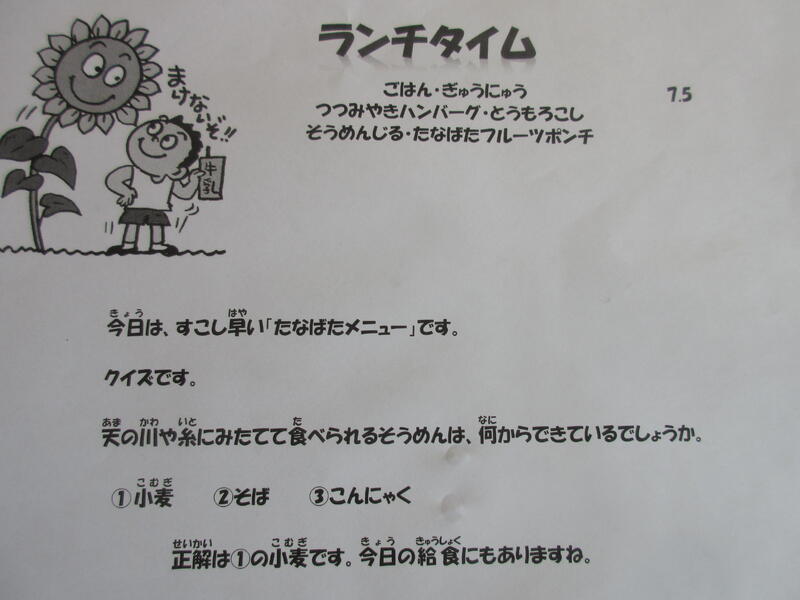 ランチタイム
まけないぞ!!
牛乳
ごはん・ぎゅうにゅう
7.5
つつみやきハンバーグ・とうもろこし
そうめんじる・たなばたフルーツポンチ
きょう はや
今日は、すこし早い「たなばたメニュー」です。
クイズです。
あま かわ いと た なに
天の川や糸にみたてて食べられるそうめんは、何からできているでしょうか。
こむぎ
①小麦 ②そば ③こんにゃく
せいかい こむぎ きょう きゅうしょく
正解は①の小麦です。今日の給食にもありますね。